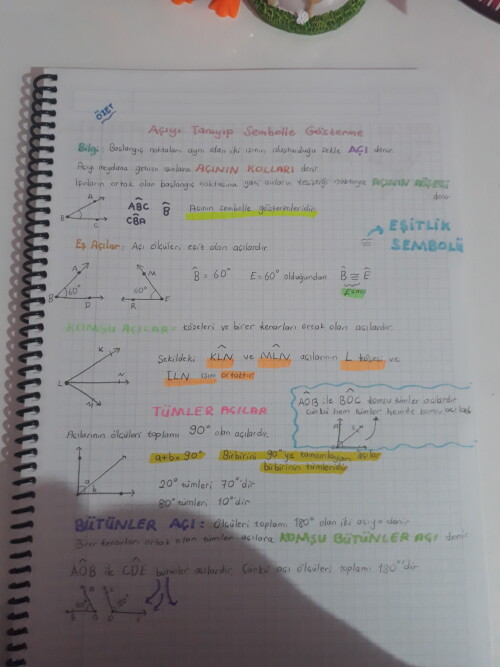 ÖZET
Açıyı Tanıyıp Sembolle Gösterme
Bilgi: Başlangıç noktaları aynı olan iki ışının oluşturduğu şekle AÇI denir.
Açıyı meydana getiren ışınlara AÇININ KOLLARI denir.
Işınların ortak olan başlangıç noktasına yani ışınların kesiştiği noktaya AÇININ KÖŞESİ
denir
A
B
C
ABC
CBA
B
Açının sembolle gösterimleridir.
= EŞİTLİK
SEMBOLÜ
Eş Açılar: Açı ölçüleri eşit olan açılardır.
A
B 60°
D
M
60°
R
E
B = 60° E = 60° olduğundan B ≅ E
KOMŞU AÇILAR= köşeleri ve birer kenarları ortak olan açılardır.
K
L
N
M
Şekildeki KLN ve MLN açılarının L köşesi ve
ILN ışını ortaktır.
AOB ile BOC komşu tümler açılardır
Çünkü hem tümler hemde komşu açılardır
TÜMLER AÇILAR
Açılarının ölçüleri toplamı 90° olan açılardır.
a
b
a+b= 90° Birbirini 90°'ye tamamlayan açılar
birbirinin tümleridir
20° tümleri 70°'dir
80° tümleri 10°'dir
BÜTÜNLER AÇI: Ölçüleri toplamı 180° olan iki açıya denir
Birer kenarları ortak olan tümler açılara KOMŞU BÜTÜNLER AÇI denir
AOB ile CDE bütünler açılardır. Çünkü açı ölçüleri toplamı 180°'dir